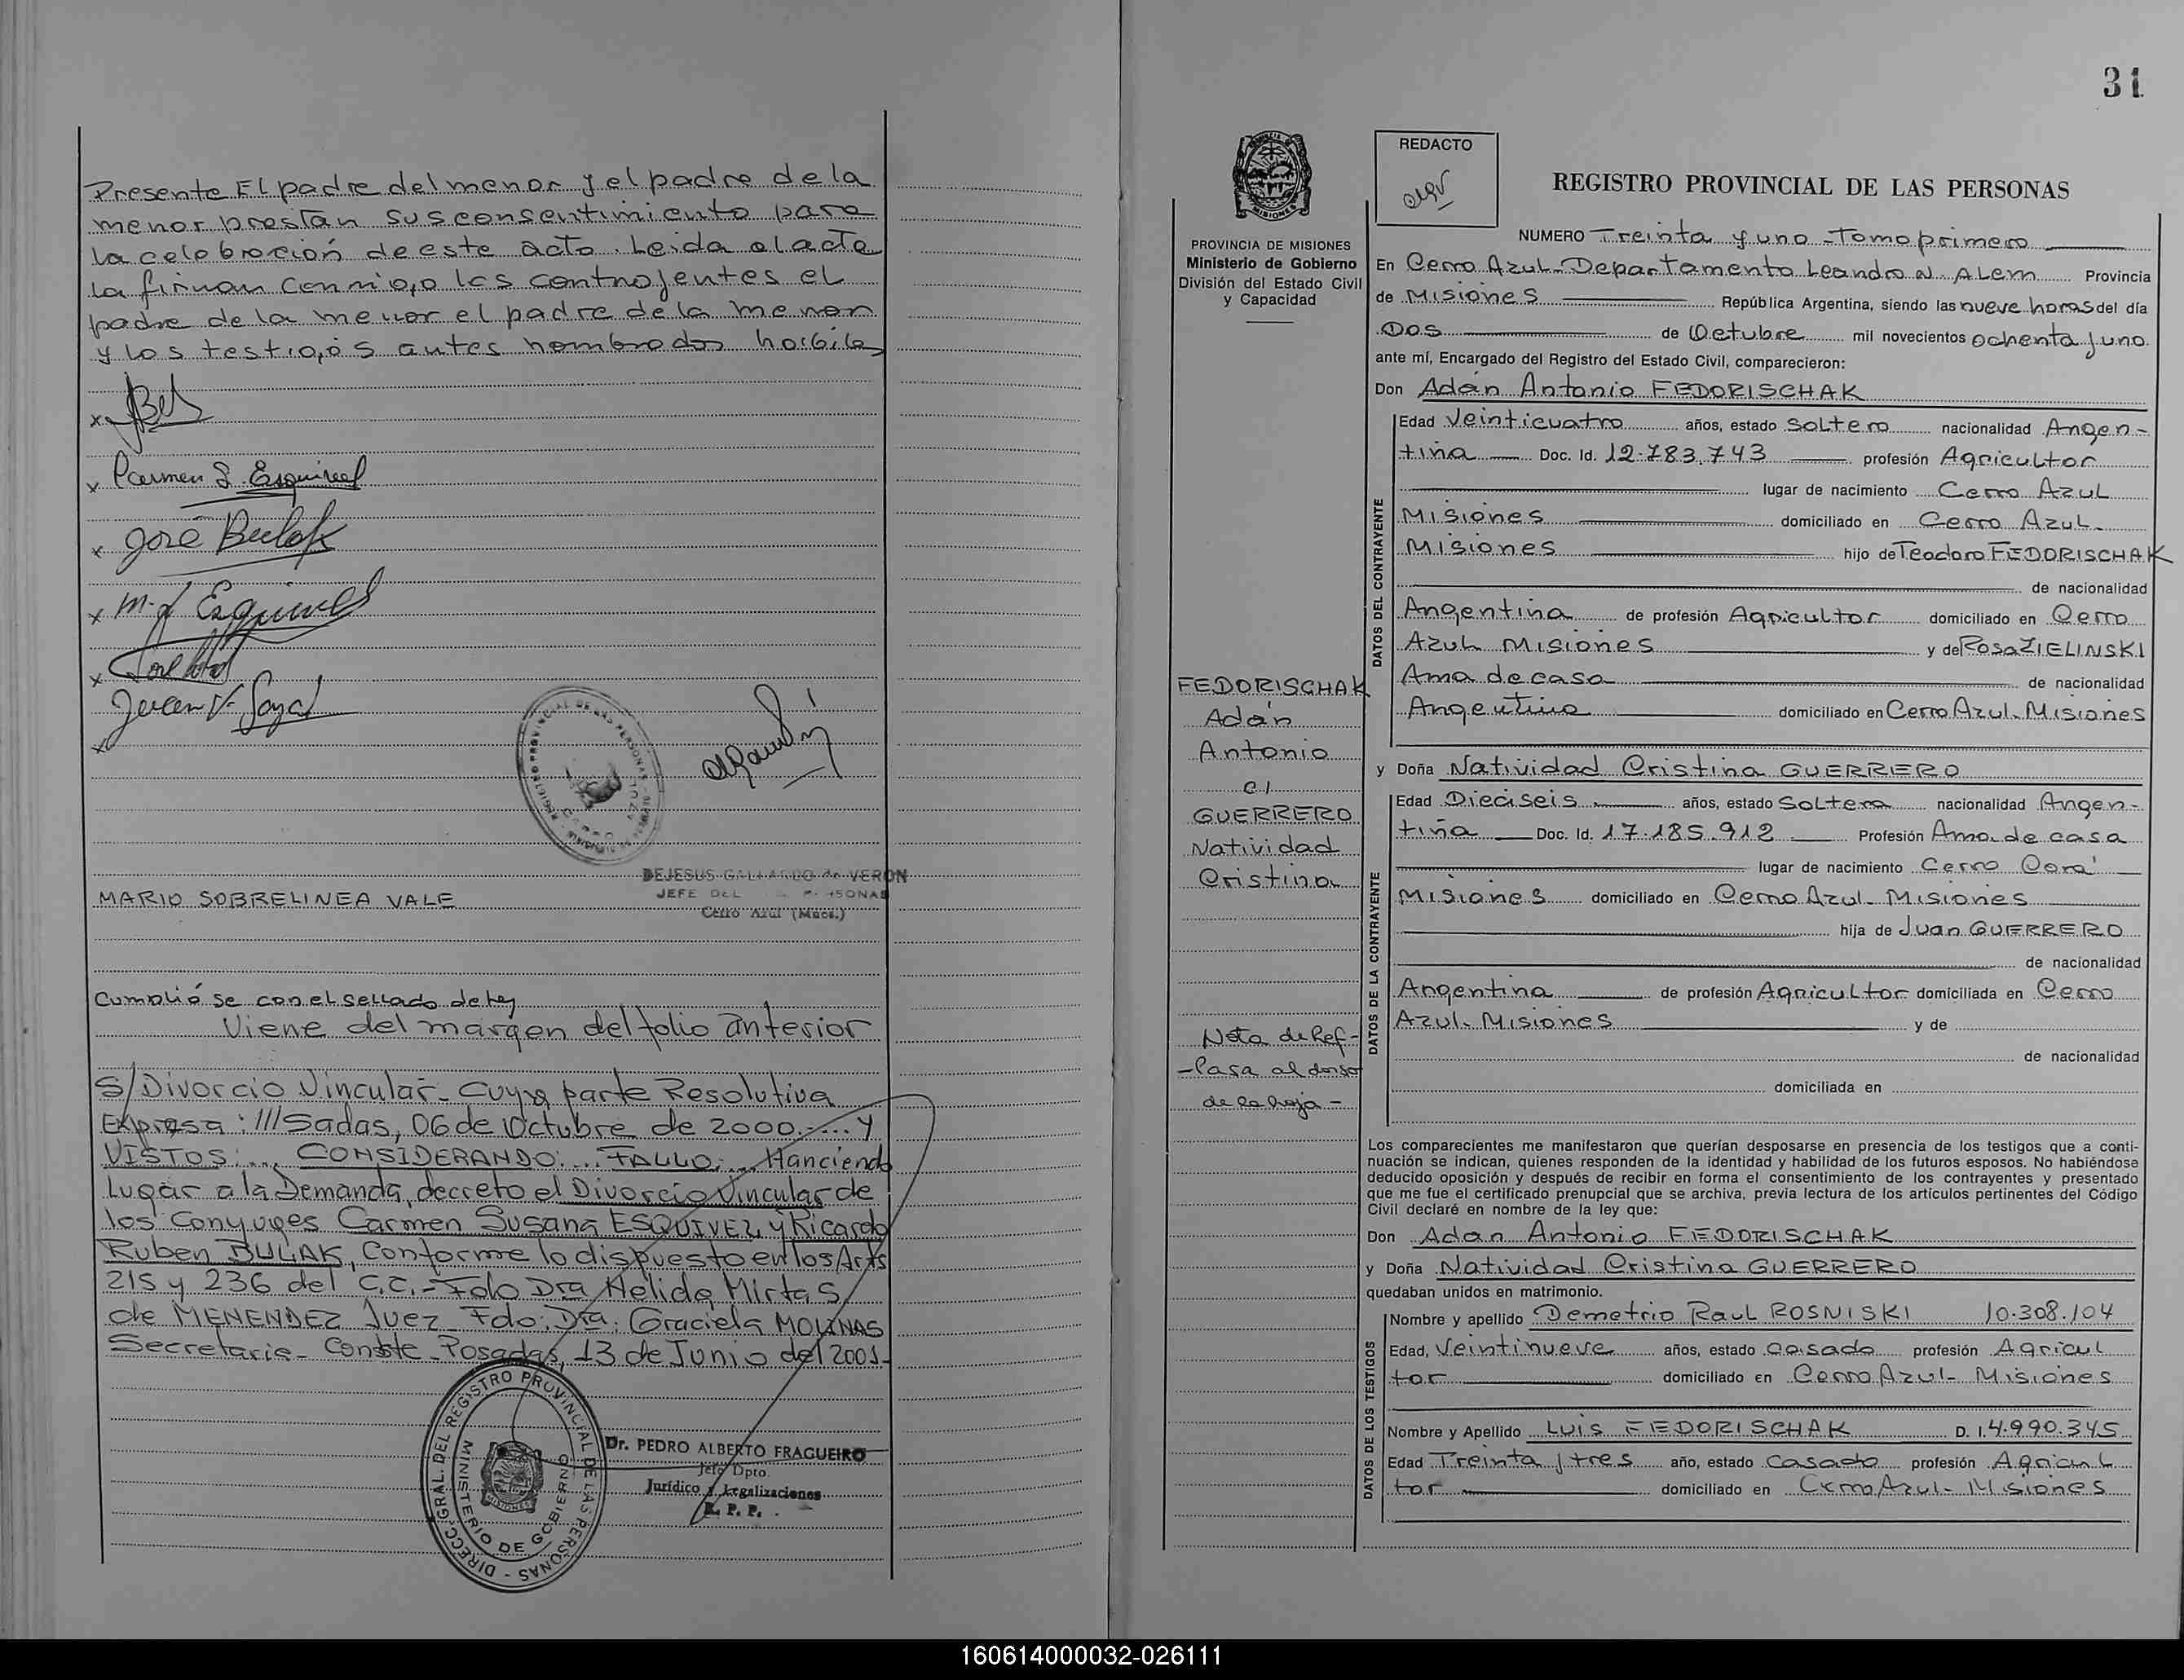 Presente El padre del menor y el padre de la
menor prestan sus consentimiento para
la celebración de este acto. Leida el acta
la firman conmigo los contrayentes el
padre de la menor el padre de la menor
y los testigos antes nombrados habiles
x
x Carmen S. Esquivel
x José Bulak
x M. Esquivel
x
Juan V.
x
REGISTRO PROVINCIAL DE LAS PERSONAS
DEJESUS GALLARDO de VERON
JEFE DEL PERSONAS
Cerro Azul (Mnes.)
MARIO SOBRELINEA VALE
Cumplió se con el sellado de ley
Viene del margen del folio anterior
S/Divorcio Vincular- Cuya parte Resolutiva
Expresa: ///Sadas, 06 de Octubre de 2000.-... Y
VISTOS:... CONSIDERANDO:... FALLO:... Hanciendo
Lugar a la Demanda, decreto el Divorcio Vincular de
los Conyuges Carmen Susana ESQUIVEL y Ricardo
Ruben BULAK, Conforme lo dispuesto en los Arts
215 y 236 del C.C.- Fdo Dra Helida Mirta S.
de MENENDEZ Juez- Fdo: Dra: Graciela MOLINAS
Secretaria- Conste- Posadas, 13 de Junio del 2001-
DIRECC. GRAL. DEL REGISTRO PROVINCIAL DE LAS PERSONAS -
MINISTERIO DE GOBIERNO
MISIONES
Dr. PEDRO ALBERTO FRAGUEIRO
Jefe Dpto.
Jurídico y Legalizaciones
R. P. P.
31
PROVINCIA DE MISIONES
Ministerio de Gobierno
División del Estado Civil
y Capacidad
REDACTO
REGISTRO PROVINCIAL DE LAS PERSONAS
NUMERO Treinta y uno - Tomo primero
En Cerro Azul - Departamento Leandro N. Alem Provincia
de Misiones República Argentina, siendo las nueve horas del día
Dos de Octubre mil novecientos ochenta y uno
ante mí, Encargado del Registro del Estado Civil, comparecieron:
Don Adán Antonio FEDORISCHAK
DATOS DEL CONTRAYENTE
Edad Veinticuatro años, estado Soltero nacionalidad Argen-
tina Doc. Id. 12.783.743 profesión Agricultor
lugar de nacimiento Cerro Azul
Misiones domiciliado en Cerro Azul-
Misiones hijo de Teodoro FEDORISCHAK
de nacionalidad
Argentina de profesión Agricultor domiciliado en Cerro
Azul Misiones y de Rosa ZIELINSKI
Ama de casa de nacionalidad
Argentina domiciliado en Cerro Azul. Misiones
FEDORISCHAK
Adán
Antonio
c/
GUERRERO
Natividad
Cristina
Nota de Ref-
-Pasa al dorso
de la hoja-
y Doña Natividad Cristina GUERRERO
DATOS DE LA CONTRAYENTE
Edad Dieciseis años, estado Soltera nacionalidad Argen-
tina Doc. Id. 17.185.912 Profesión Ama de casa
lugar de nacimiento Cerro Corá
Misiones domiciliado en Cerro Azul- Misiones
hija de Juan GUERRERO
de nacionalidad
Argentina de profesión Agricultor domiciliada en Cerro
Azul. Misiones y de
de nacionalidad
domiciliada en
Los comparecientes me manifestaron que querían desposarse en presencia de los testigos que a conti-
nuación se indican, quienes responden de la identidad y habilidad de los futuros esposos. No habiéndose
deducido oposición y después de recibir en forma el consentimiento de los contrayentes y presentado
que me fue el certificado prenupcial que se archiva, previa lectura de los artículos pertinentes del Código
Civil declaré en nombre de la ley que:
Don Adan Antonio FEDORISCHAK
y Doña Natividad Cristina GUERRERO
quedaban unidos en matrimonio.
DATOS DE LOS TESTIGOS
Nombre y apellido Demetrio Raul ROSNISKI 10.308.104
Edad, Veintinueve años, estado casado profesión Agricul
tor domiciliado en Cerro Azul- Misiones
Nombre y Apellido Luis FEDORISCHAK D. I. 4.990.345
Edad Treinta y tres año, estado Casado profesión Agricul
tor domiciliado en Cerro Azul- Misiones
160614000032-026111